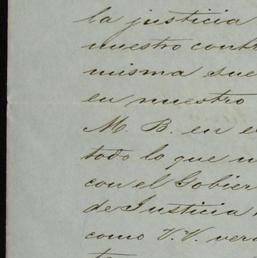 la justicia
nuestro contr
misma sue
en nuestro
M. B. en e
todo lo que n
con el Gobier
de Justicia
como V.V. ver